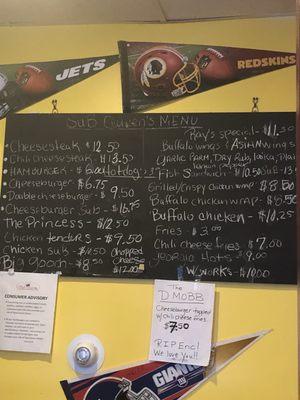 JETS
REDSKINS
SUB Queen's MENU
Cheesesteak $12.50
Chili Cheesesteak - $13.50
HAMBURGER - $6
Cheeseburger $6.75
Double cheeseburger - $9.50
Cheeseburger Sub - $16.75
The Princess - $12.50
Chicken tenders - $9.50
Chicken sub - $12.50
Big 9oooh - $8.00
Chopped
Cheese
$12.00
Ray's special - $11.50
Buffalo wings - ASIAN
Garlic Parm, Day Rub,
lemon pepper
Fish Sandwich - $10.50
Grilled/Crispy chicken wrap - $8.50
Buffalo chicken wrap - $8.50
Buffalo chicken - $10.25
Fries - $3.00
Chili cheese fries $7.00
Georgia Hots $9.00
W/works - $10.00
CONSUMER ADVISORY
The
D MOBB
Cheeseburger-topped
w/chili cheese fries
$7.50
RIP Eric!
We love you!!
GIANTS